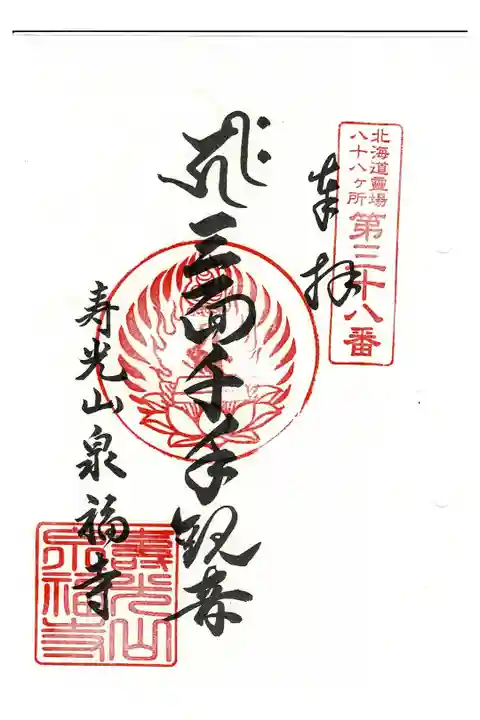 北海道霊場
八十八ヶ所
第三十八番
奉拝
三面千手観音
寿光山泉福寺
壽光山
泉福寺